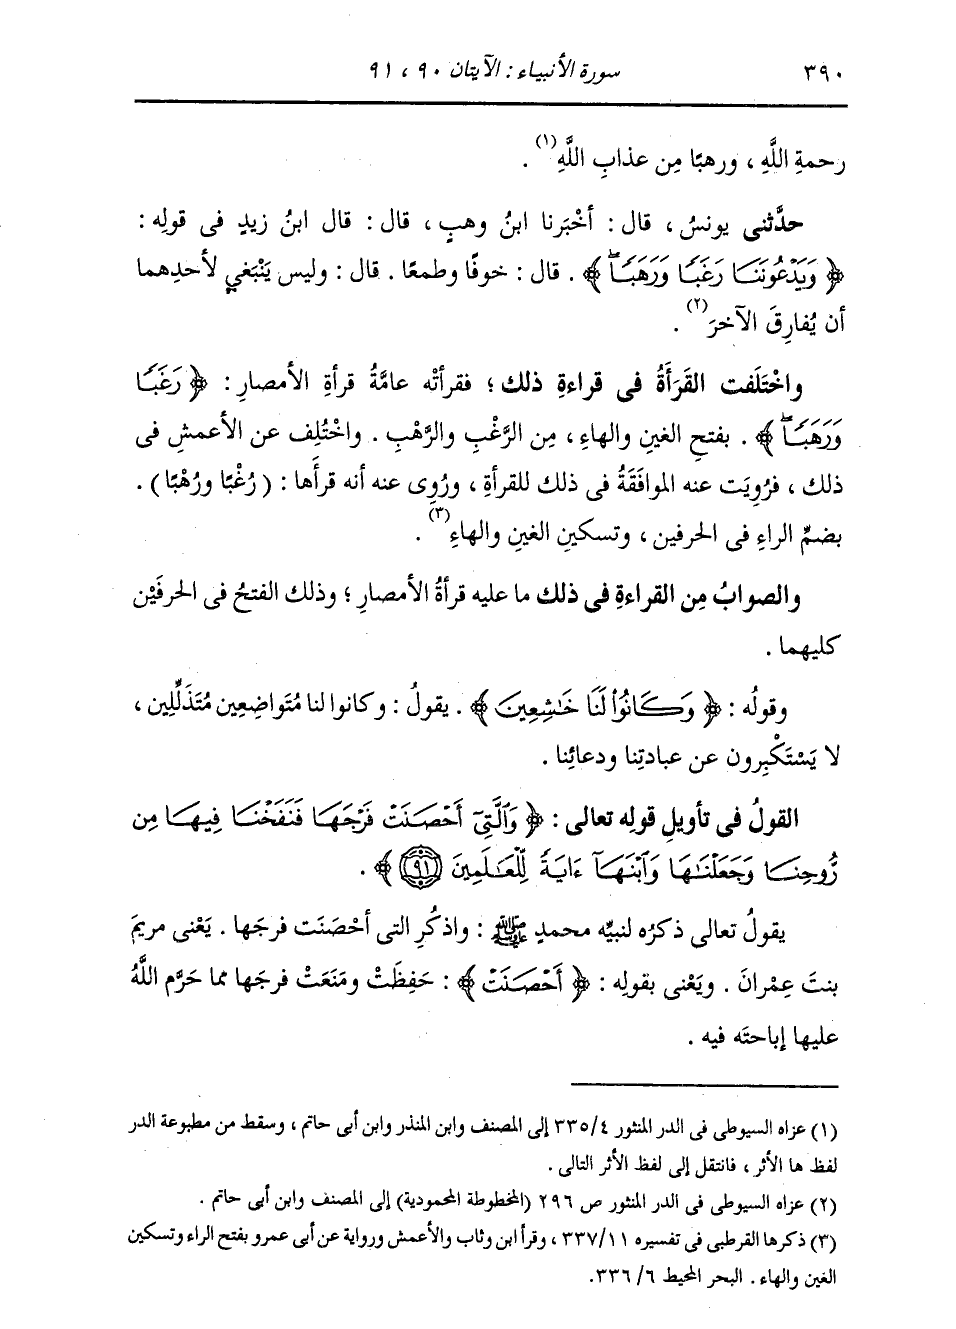 ٣٩٠ سورة الأنبياء : الآيتان ٩٠ ، ٩١
رحمةِ اللَّهِ ، ورهبًا مِن عذابِ اللَّهِ(١) .
حدَّثنى يونسُ ، قال : أخْبَرنا ابنُ وهبٍ ، قال : قال ابنُ زيدٍ فى قولِه :
﴿ وَيَدْعُونَنَا رَغَبًا وَرَهَبًاۖ ﴾ . قال : خوفًا وطمعًا . قال : وليس يَنْبَغى لأحدِهما
أن يُفارِقَ الآخرَ(٢) .
واخْتَلَفت القَرَأَةُ فى قراءةِ ذلك ؛ فقرأتْه عامَّةُ قرأةِ الأمصارِ : ﴿ رَغَبًا
وَرَهَبًاۖ ﴾ . بفتحِ الغينِ والهاءِ ، مِن الرَّغْبِ والرَّهْبِ . واخْتُلِف عن الأعمشِ فى
ذلك ، فرُوِيَت عنه الموافَقَةُ فى ذلك للقرأةِ ، ورُوِى عنه أنه قرأها : ( رُغْبًا ورُهْبًا ) .
بضمِّ الراءِ فى الحرفين ، وتسكينِ الغينِ والهاءِ(٣) .
والصوابُ مِن القراءةِ فى ذلك ما عليه قرأةُ الأمصارِ ؛ وذلك الفتحُ فى الحرفَيْن
كليهما .
وقولُه : ﴿ وَكَانُوا۟ لَنَا خَٰشِعِينَ ﴾ . يقولُ : وكانوا لنا مُتَواضِعِين مُتَذَلِّلِين ،
لا يَسْتَكْبِرون عن عبادتِنا ودعائِنا .
القولُ فى تأويلِ قولِه تعالى : ﴿ وَٱلَّتِىٓ أَحْصَنَتْ فَرْجَهَا فَنَفَخْنَا فِيهَا مِن
رُّوحِنَا وَجَعَلْنَٰهَا وَٱبْنَهَآ ءَايَةً لِّلْعَٰلَمِينَ ٩١ ﴾ .
يقولُ تعالى ذكرُه لنبيِّه محمدٍ ﷺ : واذكُرِ التى أحْصَنَت فرجَها . يَعْنى مريمَ
بنتَ عِمْرانَ . ويَعْنى بقولِه : ﴿ أَحْصَنَتْ ﴾ : حَفِظَتْ ومَنَعَتْ فرجَها مما حَرَّم اللَّهُ
عليها إباحتَه فيه .
(١) عزاه السيوطى فى الدر المنثور ٣٣٥/٤ إلى المصنف وابن المنذر وابن أبى حاتم ، وسقط من مطبوعة الدر
لفظ ها الأثر ، فانتقل إلى لفظ الأثر التالى .
(٢) عزاه السيوطى فى الدر المنثور ص ٢٩٦ (المخطوطة المحمودية) إلى المصنف وابن أبى حاتم .
(٣) ذكرها القرطبى فى تفسيره ٣٣٧/١١ ، وقرأ ابن وثاب والأعمش ورواية عن أبى عمرو بفتح الراء وتسكين
الغين والهاء . البحر المحيط ٦/ ٣٣٦.